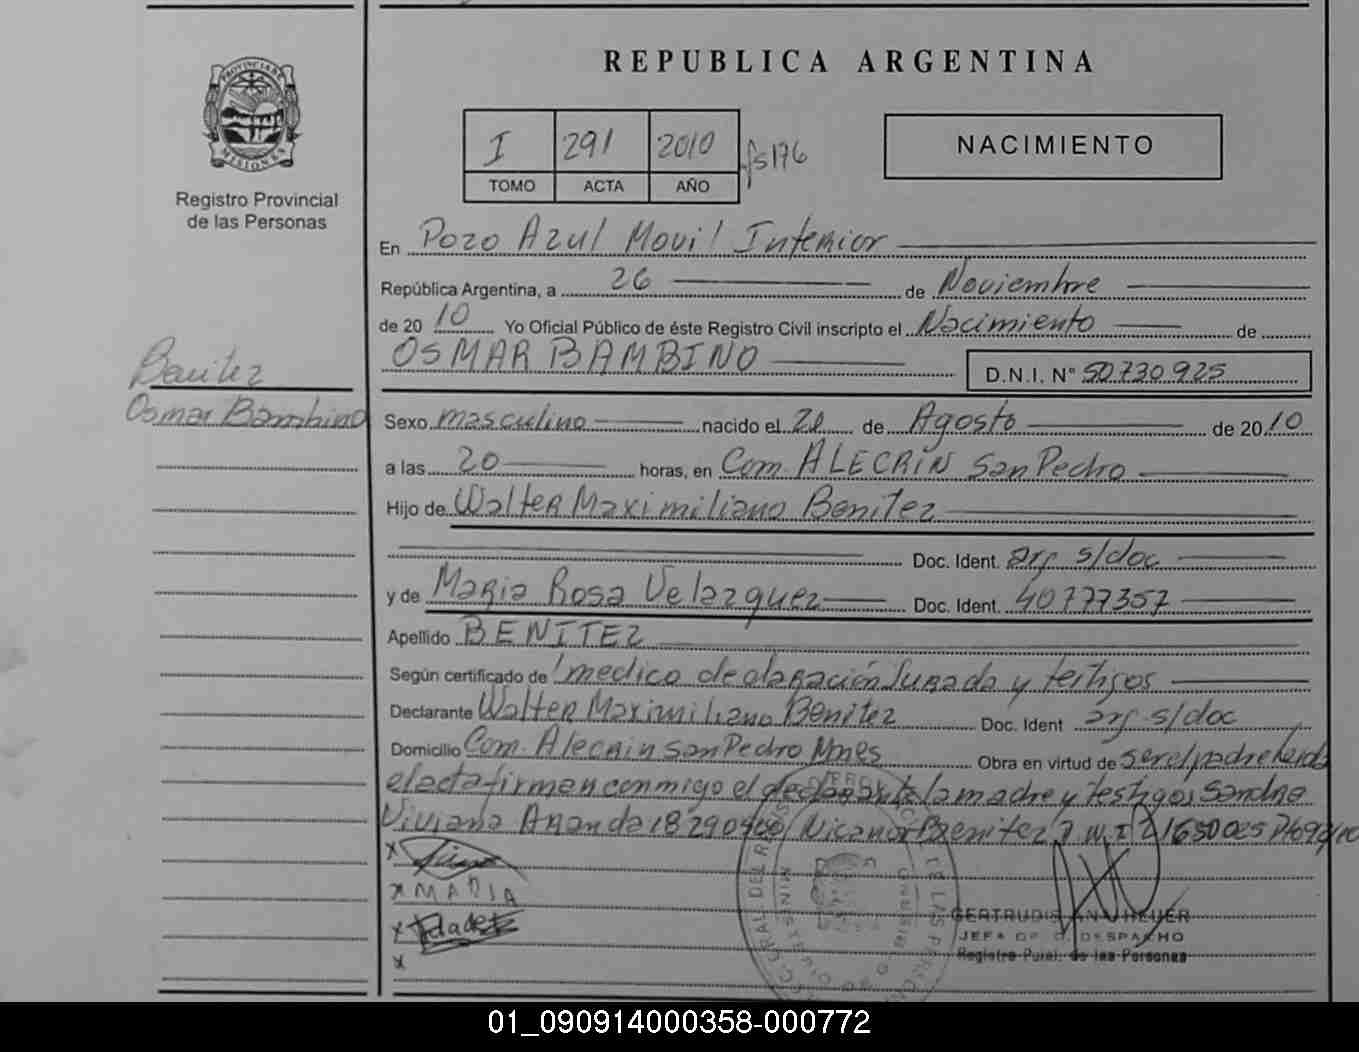 REPUBLICA ARGENTINA
PROVINCIA DE MISIONES
Registro Provincial
de las Personas
I 291 2010 fs 176
TOMO ACTA AÑO
NACIMIENTO
En Pozo Azul Movil Interior
República Argentina, a 26 de Noviembre
de 20 10 Yo Oficial Público de éste Registro Civil inscripto el Nacimiento de
OSMAR BAMBINO D.N.I. N° 50730925
Benitez
Osmar Bambino
Sexo masculino nacido el de Agosto de 20 10
a las 20 horas, en Com. ALECRIN San Pedro
Hijo de Walter Maximiliano Benitez
Doc. Ident. arg s/doc
y de Maria Rosa Velazquez Doc. Ident. 40777357
Apellido BENITEZ
Según certificado de medico declaración Jurada y testigos
Declarante Walter Maximiliano Benitez Doc. Ident arg. s/doc
Domicilio Com. Alecrin San Pedro Mnes Obra en virtud de ser el padre Leida
el acta firman conmigo el declarante la madre y testigos Sandra
Viviana Nicanor
x
x MARIA
x
x
GERTRUDIS ANA HEUER
JEFA DE D. DESPACHO
Registro de las Personas
01_090914000358-000772